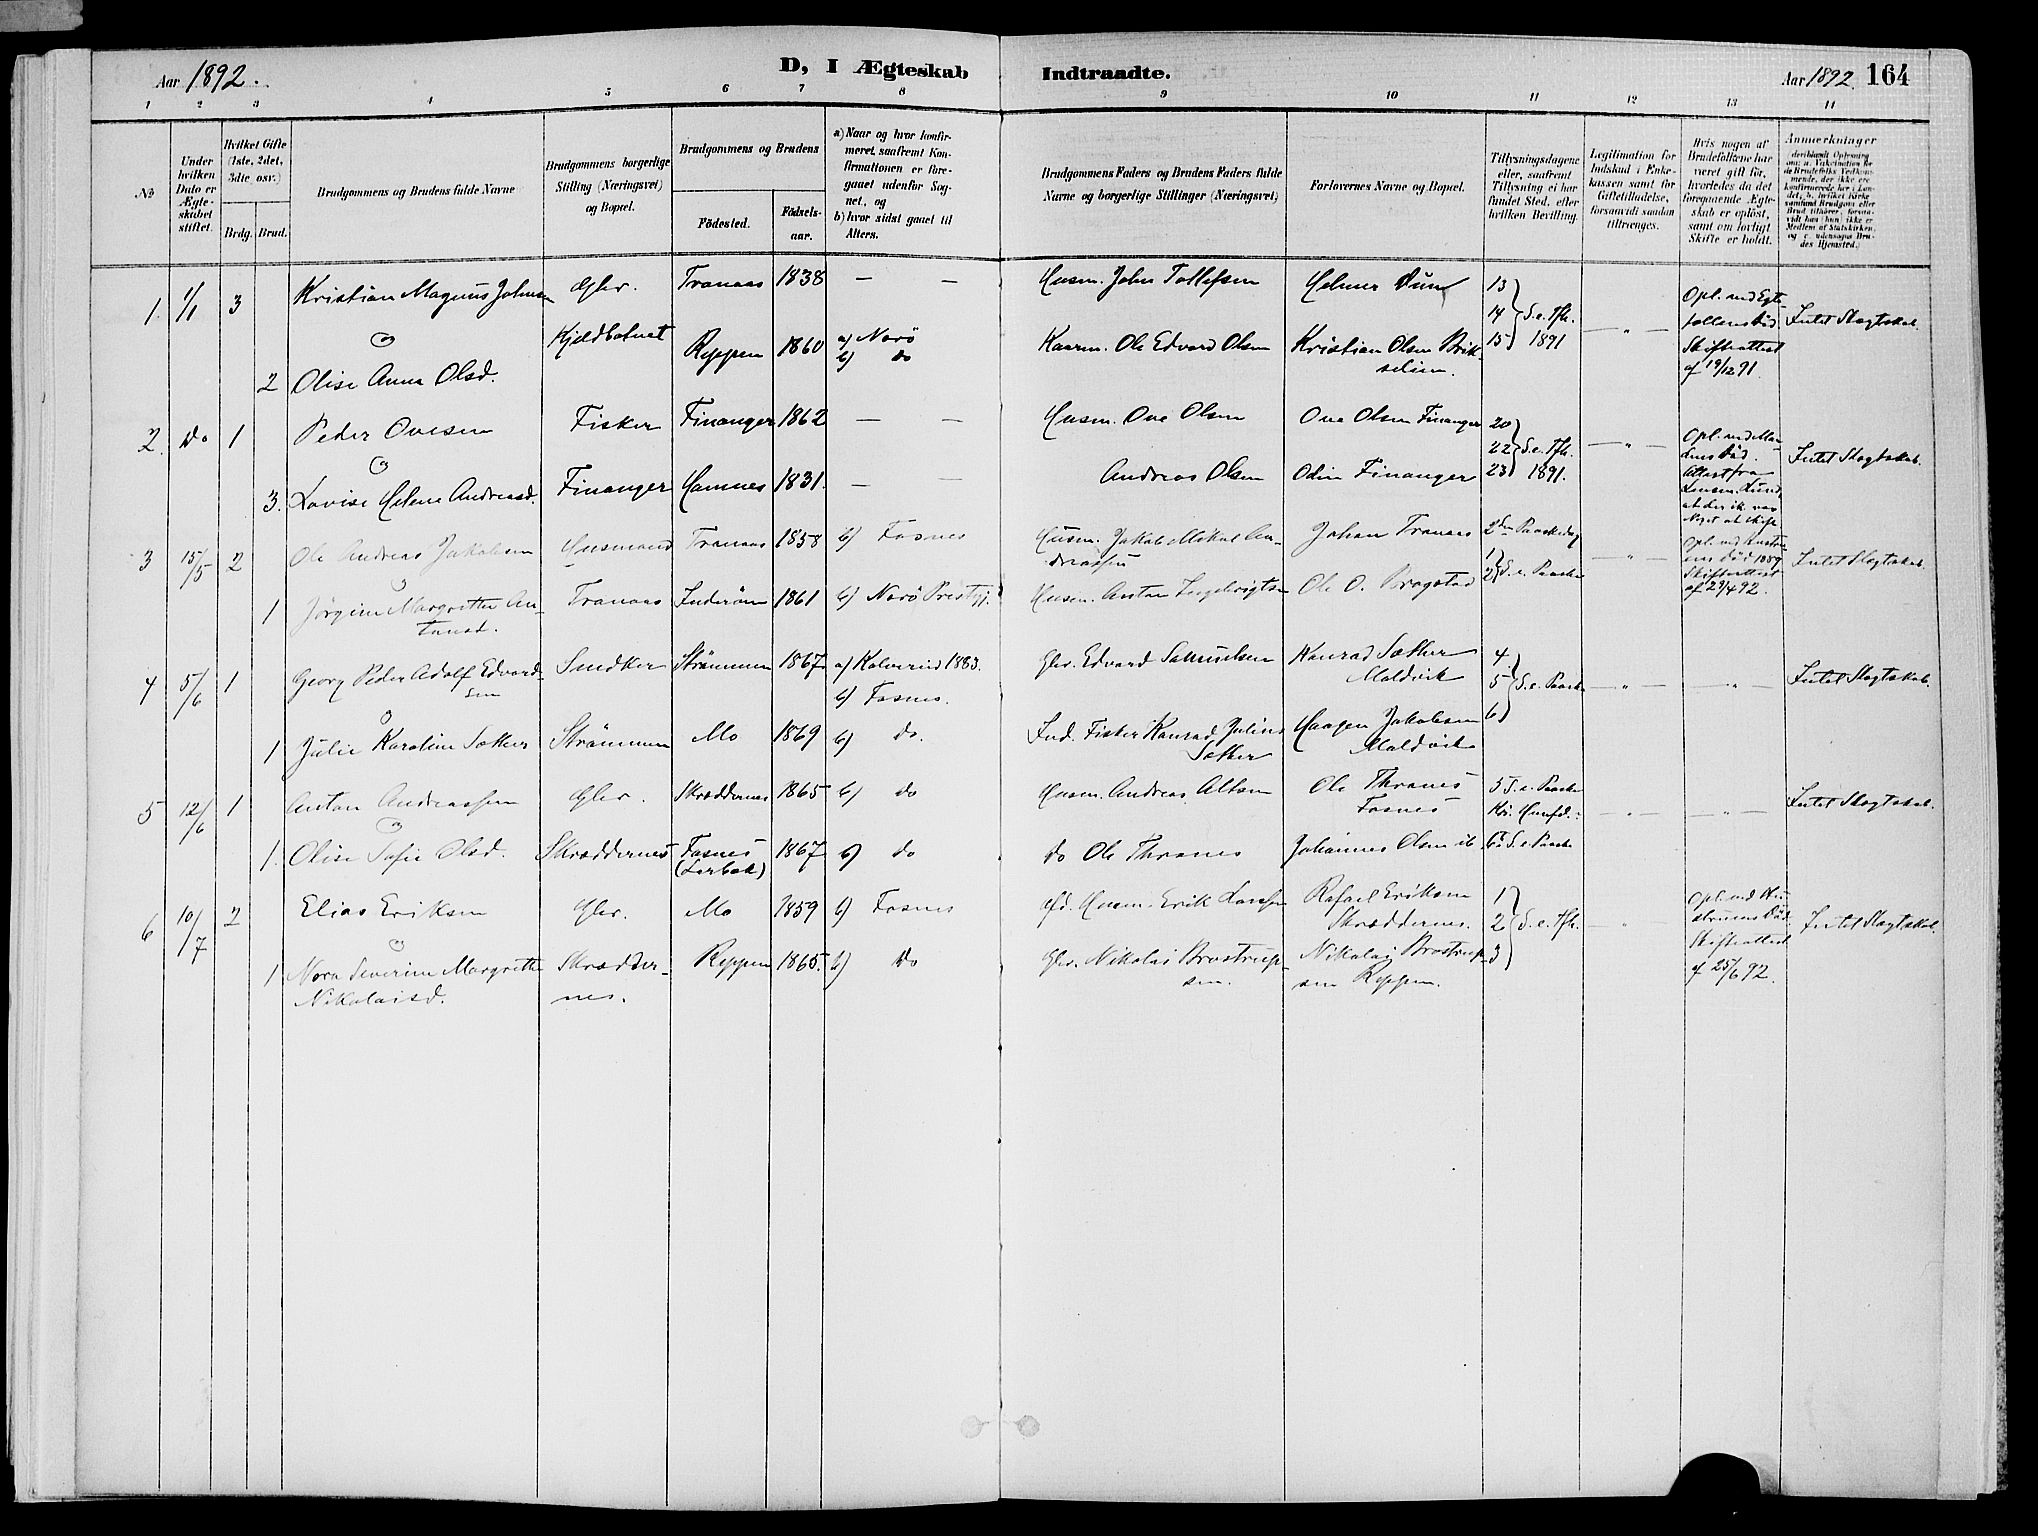 Aar 1892.
D, I Ægteskab Indtraadte.
Aar 1892. 164
1 2 3 4 5 6 7 8 9 10 11 12 13 14
No
Under hvilken Dato er Ægteskabet stiftet.
Hvilket Gifte (1ste, 2det, 3die, osv.)
Brdg. Brud.
Brudgommens og Brudens fulde Navne
Brudgommens borgerlige Stilling (Næringsvei) og Bopæl.
Brudgommens og Brudens
Fødested.
Fødselsaar.
a) Naar og hvor konfirmeret, saafremt Konfirmationen er foregaaet udenfor Sognet, og
b) hvor sidst gaaet til Alters.
Brudgommens Faders og Brudens Faders fulde Navne og borgerlige Stillinger (Næringsvei)
Forlovernes Navne og Bopæl.
Tillysningsdagene eller, saafremt Tillysning ei har fundet Sted, efter hvilken Bevilling.
Legitimation for Indskud i Enkekassen samt for Giftetilladelse, forsaavidt saadan tiltrænges.
Hvis nogen af Brudefolkene har været gift før, hvorledes da det foregaaende Ægteskab er opløst, samt om lovligt Skifte er holdt.
Anmærkninger
1. 1/1 3 Kristian Magnus Johnsen Gbr. Tranaas 1838 — — Husm. John Tollefsen Helmer Duun 13
14 S. e. Tfh. — " — Opl. ved Egtefællens Død Intet Slægtskab.
15 1891 Skifteattest af 19/12 91.
og Kjeldbotnet
2 Olise Anna Olsd. Reppen 1860 a) Nærø b) do Kaarm. Ole Edvard Olsen Kristian Olsen
2. Do 1 Peder Ovesen Fisker Finanger 1862 — — Husm. Ove Olsen Ove Olsen Finanger 20
22 S. e. Tfh. — " — Død. Intet Slægtskab.
og
3. Lovise Helene Andreasd. Finanger Hamnes 1831. — — Andreas Olsen Odin Finanger 23 1891. Attest fra Lensm. Lund
3 15/5 2 Ole Andreas Jakobsen Husmand Tranaas 1858 b) Fosnes Husm. Jakob Mikal Andreassen Johan Tranaas 2den Paaskedag
og — " — Skifteattest af 29/4 92. Intet Slægtskab.
1 Jørgine Margrethe Antonsd. Tranaas Inderøen 1861 b) Nærø Prestgj. Husm. Anton Ingebrigtsen Ole O. Bragstad 1 2 S. e. Paaske
4 5/6 1 Georg Peder Adolf Edvardsen Snedker Strømmen 1867 a) Kolvereid 1883. b) Fosnes. Gbr. Edvard Samuelsen Konrad Sæther Moldvik 4
5 S. e. Paaske — " — — " — Intet Slægtskab.
6
og
1 Julie Karoline Sæther Strømmen Mo 1869 b) do. Ind. Fisker Konrad Julius Sæther Haagen Jakobsen Moldvik
5 12/6 1 Anton Andreassen Gbr. Skrøddernes 1865 b) do Husm. Andreas Altsen Ole Thranes Fosnes 5 S. e. Paaske
Kr. Himfd. — " — — " — Intet Slægtskab.
og
1. Olise Sofie Olsd. Skrøddernes Fosnes 1867 b) do do Ole Thranes Johannes Olsen ib 6 S. e. Paaske
6 10/7 2 Elias Eriksen Gbr. Mo 1859 b) Fosnes Husm. Erik Larssen Rafael Eriksen Skrøddernes. 1
2 S. e. Tfh. — " — Opl. ved Hustruens Død. Intet Slægtskab.
3 Skifteattest af 25/6 92.
og
1 Nora Severine Margrethe Nikolaisd. Skrøddernes. Reppen 1865. b) do Gbr. Nikolai Brostrupsen. Nikolai Brostrupsen Reppen.